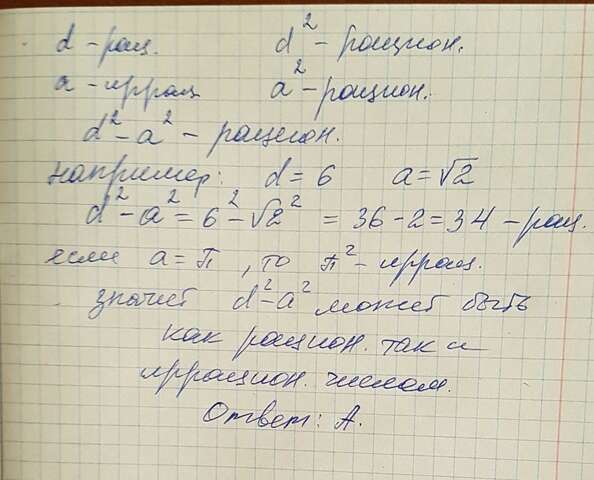 d - рац. d² - рацион.
a - иррац a² - рацион.
d² - a² - рацион.
например: d = 6 a = √2
d² - a² = 6² - √2² = 36 - 2 = 34 - рац.
если a = π, то π² - иррац.
значит d² - a² может быть
как рацион. так и
иррацион. числом.
Ответ: А.